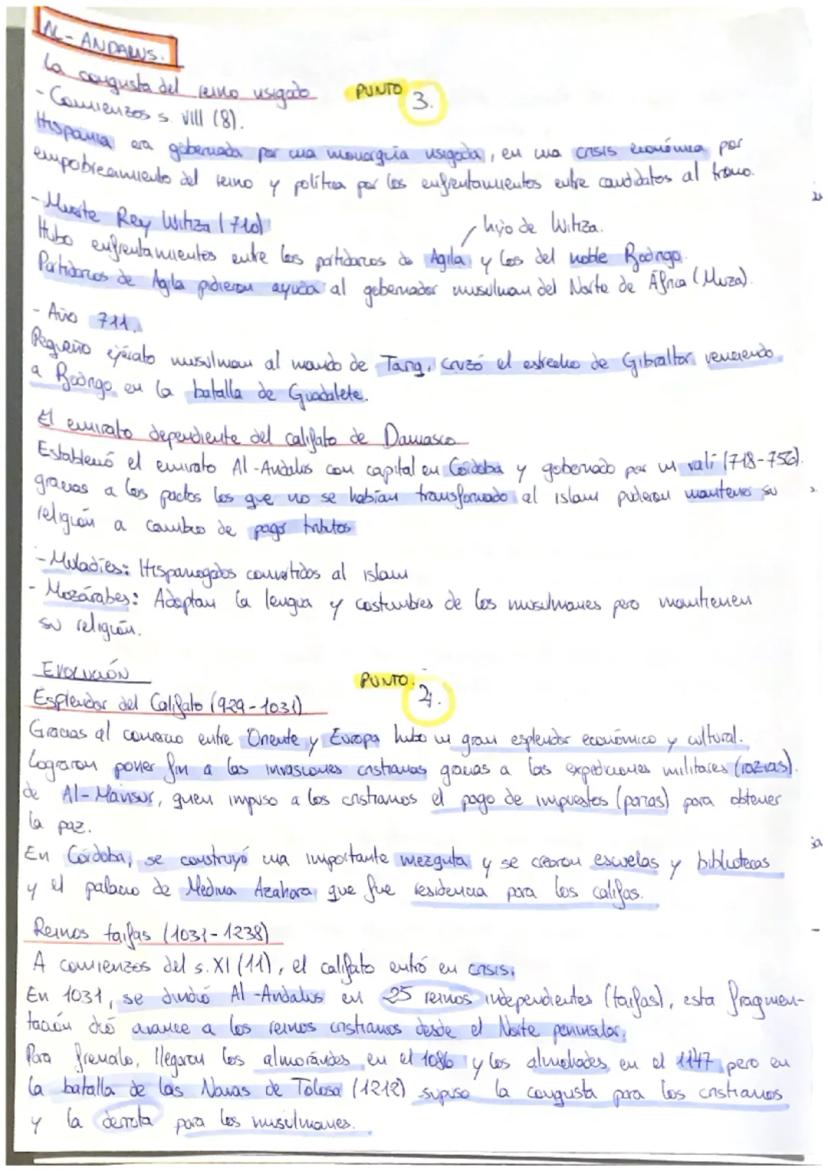 AL-ANDALUS.
La conquista del reino visigodo PUNTO 3.
- Comienzos s. VIII (8).
Hispania era gobernada por una monarquía visigoda, en una crisis económica por
empobrecimiento del reino y política por los enfrentamientos entre candidatos al trono.
- Muerte Rey Witiza (710)
hijo de Witiza.
Hubo enfrentamientos entre los partidarios de Agila y los del noble Rodrigo.
Partidarios de Agila pidieron ayuda al gobernador musulman del Norte de África (Muza).
- Año 711.
Pequeño ejército musulman al mando de Tariq, cruzó el estrecho de Gibraltar venciendo
a Rodrigo en la batalla de Guadalete.
El emirato dependiente del califato de Damasco
Estableció el emirato Al-Andalus con capital en Córdoba y gobernado por un valí (718-756).
gracias a los pactos los que no se habían transformado al islam pudieron mantener su
religión a cambio de pagar tributos
- Muladíes: Hispanogodos convertidos al islam
- Mozárabes: Adoptan la lengua y costumbres de los musulmanes pero mantienen
su religión.
EVOLUCIÓN PUNTO. 4.
Esplendor del Califato (929-1031)
Gracias al comercio entre Oriente y Europa hubo un gran esplendor económico y cultural.
Lograron poner fin a las invasiones cristianas gracias a las expediciones militares (razias).
de Al-Mansur, quien impuso a los cristianos el pago de impuestos (parias) para obtener
la paz.
En Córdoba, se construyó una importante mezquita y se crearon escuelas y bibliotecas
y el palacio de Medina Azahara que fue residencia para los califas.
Reinos taifas (1031-1238)
A comienzos del s. XI (11), el califato entró en crisis.
En 1031, se dividió Al-Andalus en 25 reinos independientes (taifas), esta fragmen-
tación dió avance a los reinos cristianos desde el Norte peninsular.
Para frenarlo, llegaron los almorávides en el 1086 y los almohades en el 1147 pero en
la batalla de las Navas de Tolosa (1212) supuso la conquista para los cristianos
y la derrota para los musulmanes.